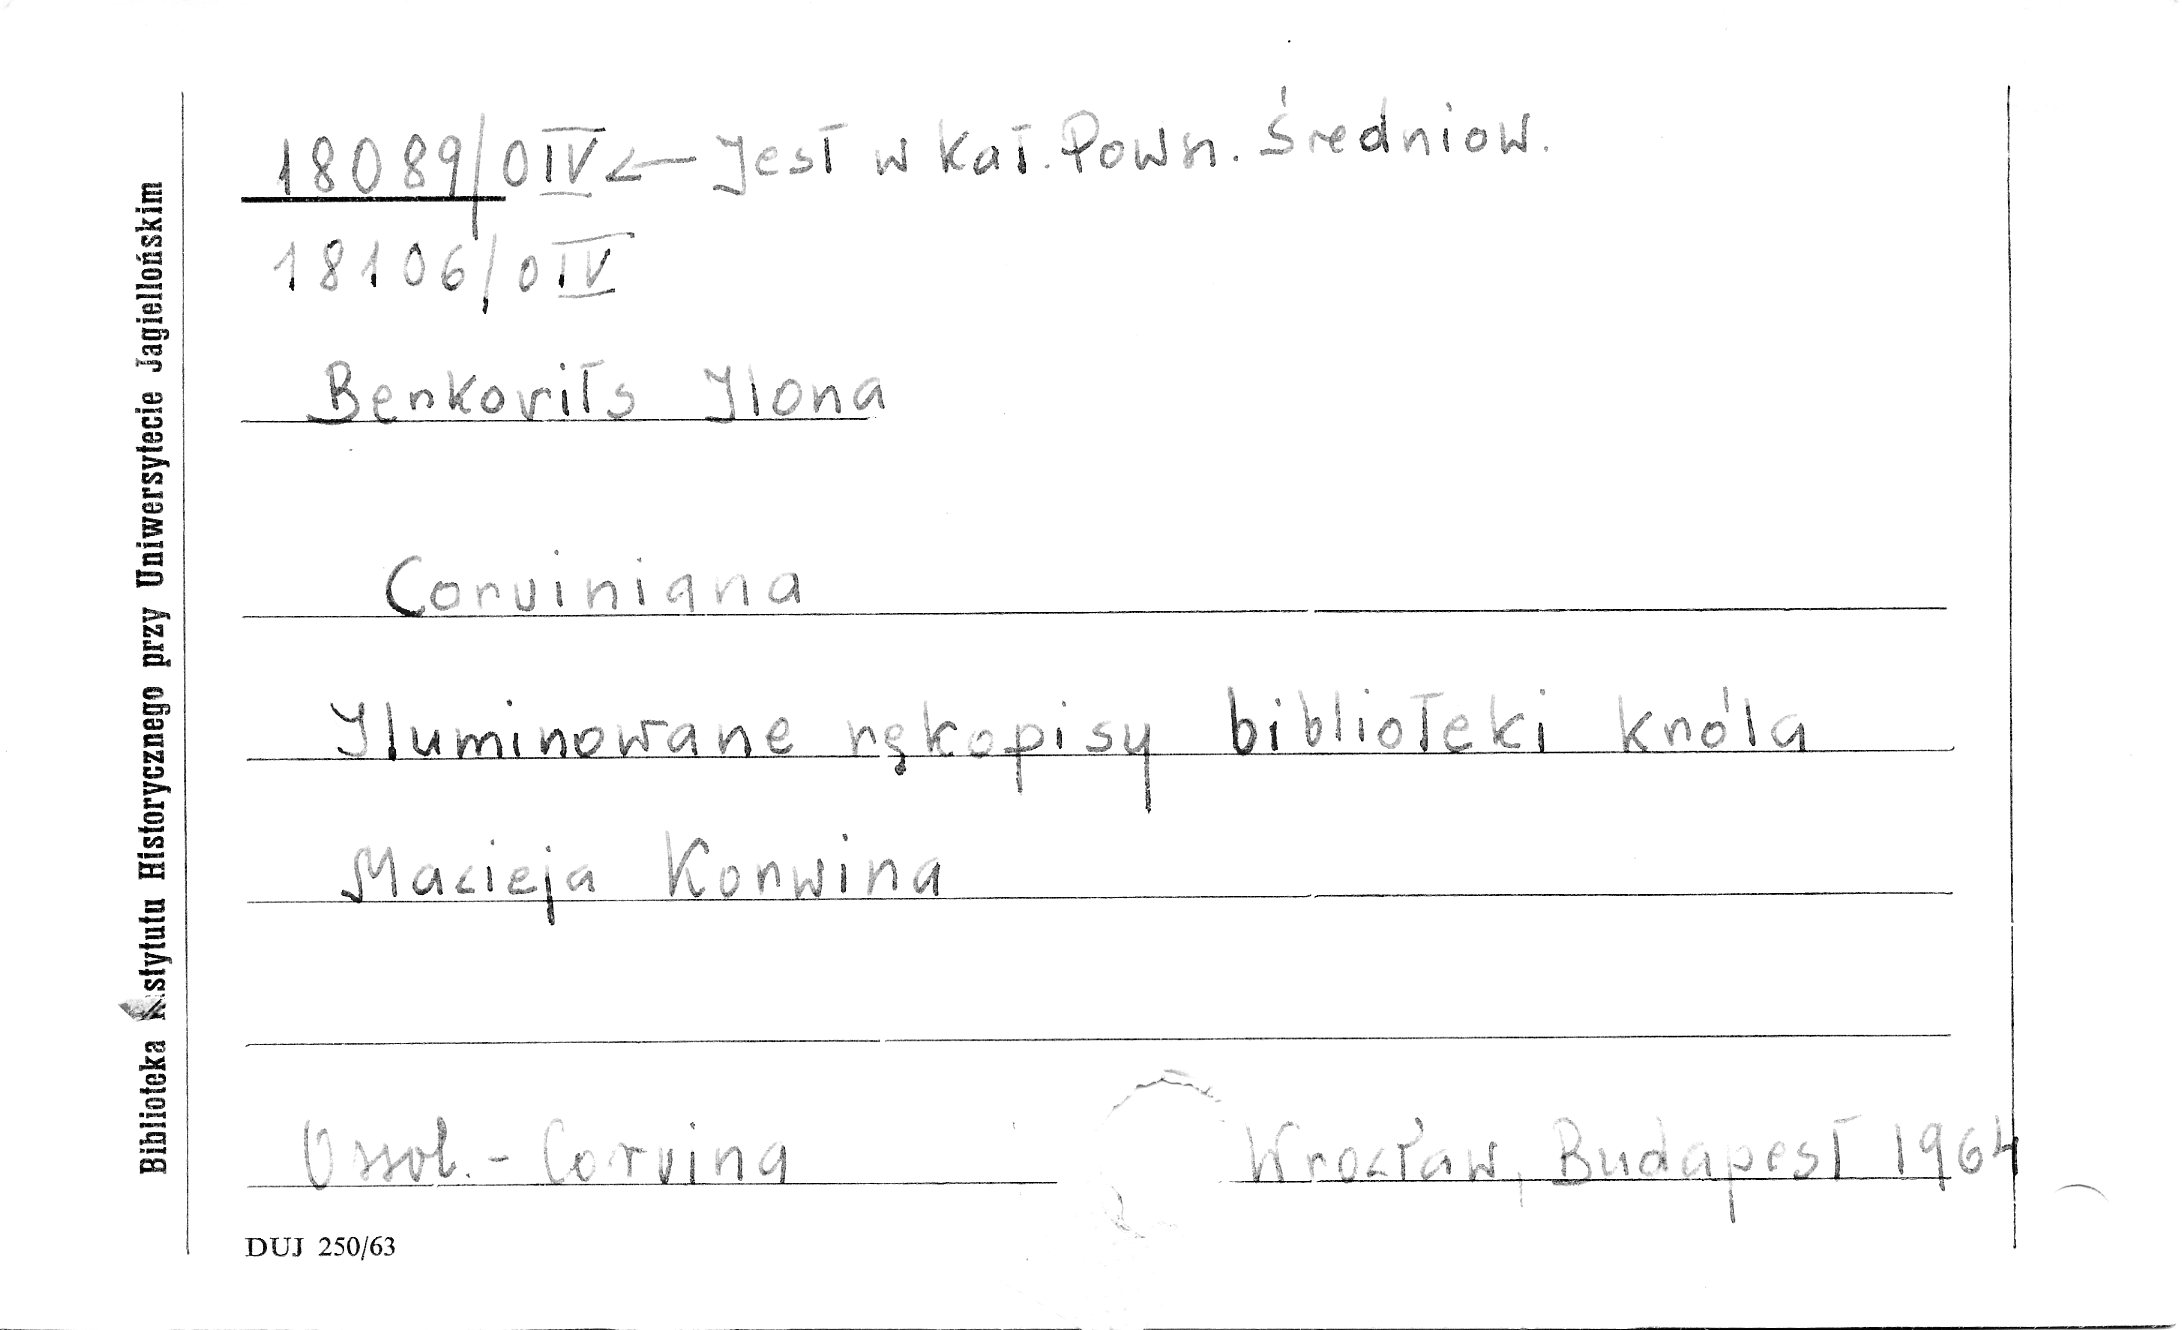 18089/0IV ← Jest w Kat. Powsz. Średniow.
18106/0IV
Benkovits Ilona
Corviniana
Iluminowane rękopisy biblioteki króla
Macieja Korwina
Ossol. - Corvina Wrocław, Budapest 1964
DUJ 250/63
Biblioteka Instytutu Historycznego przy Uniwersytecie Jagiellońskim